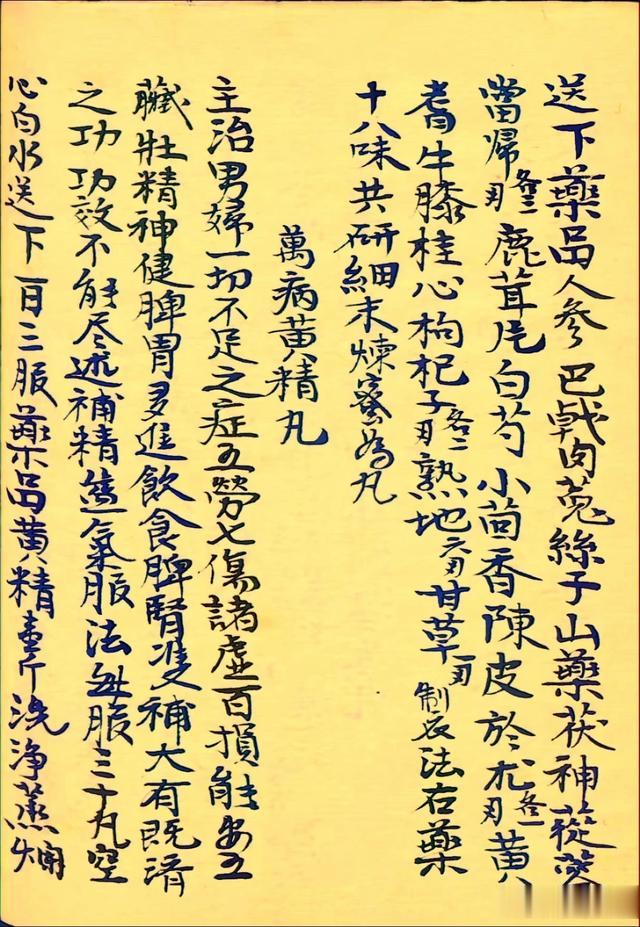 送下藥品人參巴戟肉菟絲子山藥茯神蓯
當歸各二刄鹿茸尾白芍小茴香陳皮於尤各一刄黃
耆牛膝桂心枸杞子各二刄熟地六刄甘草一刄制法右藥
十八味共研細末煉蜜為丸
萬病黃精丸
主治男婦一切不足之症五勞七傷諸虛百損能安五
臟壯精神健脾胃多進飲食脾腎雙補大有既濟
之功功效不能尽述補精益氣服法每服三十丸空
心白水送下一日三服藥品黃精壹斤洗淨蒸爛